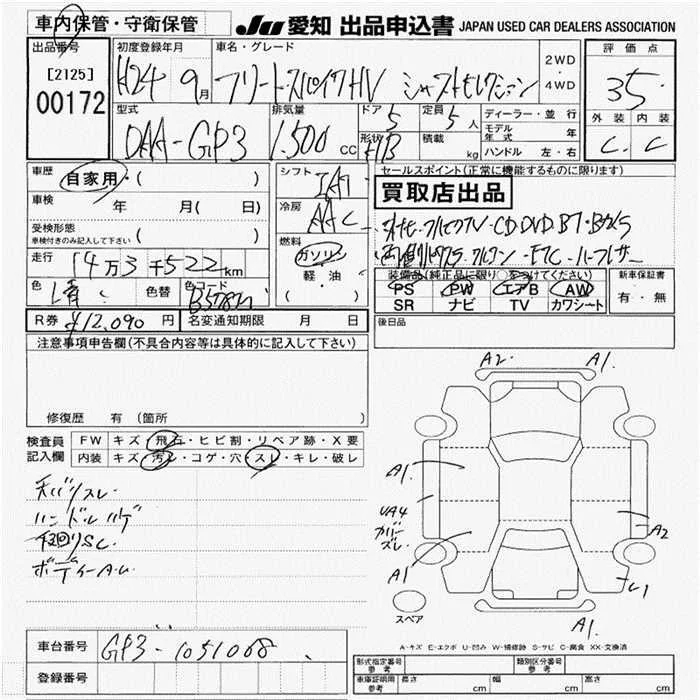 車内保管・守衛保管
JU 愛知 出品申込書 JAPAN USED CAR DEALERS ASSOCIATION
出品番号 初度登録年月 車名・グレード 2WD・4WD 評価点
[2125]
00172 H24 9月 フリードスパイクHV ジャストセレクション 35
型式 排気量 ドア 5 定員 5人 ディーラー・並行 外装 内装
DAA-GP3 1.500CC 形状 積載 kg モデル年式 年 C C
ハンドル 左・右
車歴 自家用・( ) シフト セールスポイント(正常に機能するものに限ります)
車検 年 月(日) 冷房 AAC 買取店出品
受検形態 ( )
車検付きのみ記入して下さい
走行 14万3千522km 燃料 ガソリン・軽・油・( )
色 色替 色コード 装備品(純正品に限り〇をつけてください) 新車保証書
PS PW エアB AW 有・無
SR ナビ TV カワシート
R券 ¥12,090円 名変通知期限 月 日 後日品
注意事項申告欄(不具合内容等は具体的に記入して下さい)
修復歴 有 (箇所 )
検査員記入欄 FW キズ・飛石・ヒビ割・リペア跡・X要
内装 キズ・汚レ・コゲ・穴・スレ・キレ・破レ
ハンドルハゲ
A2. A1.
A1
UA4
カバー
ズレ
A2
A1
A1.
スペア
A-キズ E-エクボ U-凹み W-補修跡 S-サビ C-腐食 XX-交換済
車台番号 GP3-1051068
登録番号
形式指定番号 参考 類別区分番号 参考
車庫証明用 参考 長さ cm 幅 cm 高さ cm